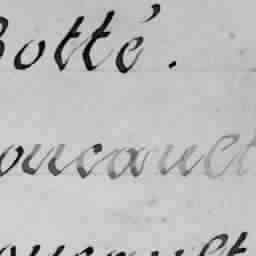 Botté.
oucault
oucault